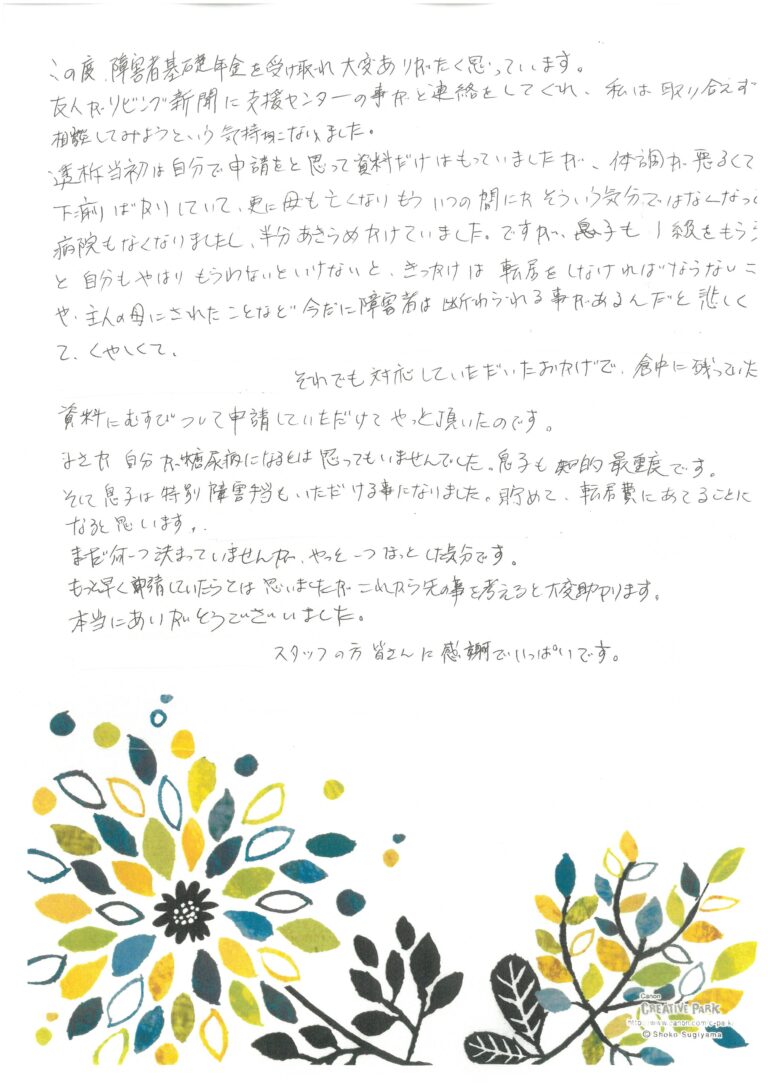 この度、障害者基礎年金を受け取れ大変ありがたく思っています。
友人がリビング新聞に支援センターの事がと連絡をしてくれ、私は取り合えず
相談してみようという気持ちになりました。
透析当初は自分で申請をと思って資料だけはもっていましたが、体調が悪くて
下痢ばかりしていて、更に母も亡くなりもういつの間にかそういう気分ではなくなっ
病院もなくなりましたし、半分あきらめかけていました。ですが、息子も1級をもら
と自分もやはりもらわないといけないと、きっかけは転居をしなければならないこ
や、主人の母にされたことなど今だに障害者は断わられる事があるんだと悲しく
て、くやしくて。
それでも対応していただいたおかげで、倉中に残っていた
資料にむすびついて申請していただけてやっと頂いたのです。
まさか自分が糖尿病になるとは思ってもいませんでした。息子も知的最重度です。
そして息子は特別障害手当もいただける事になりました。貯めて、転居費にあてることに
なると思います。
まだ何一つ決まっていませんが、やっと一つほっとした気分です。
もっと早く申請していたらとは思いましたがこれから先の事を考えると大変助かります。
本当にありがとうございました。
スタッフの方皆さんに感謝でいっぱいです。
Canon
CREATIVE PARK
© Shoko Sugiyama